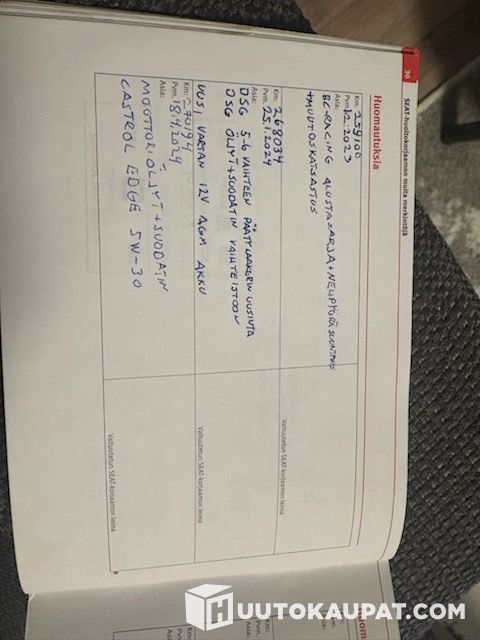 30
SEAT-huoltokorjaamon muita merkintöjä
Huomautuksia
Km: 259100
Pvm: 12.2023
Asia:
BC-RACING ALUSTASARJA + NELIPYÖRÄSUUNTAUS
+ MUUTOSKATSASTUS
Valtuutetun SEAT-korjaamon leima
Km: 268034
Pvm: 25.1.2024
Asia:
DSG 5-6 VAIHTEEN PÄÄTYLAAKERIN UUSINTA
DSG ÖLJYT + SUODATIN VAIHTEISTOON
UUSI VARTAN 12V AGM AKKU
Valtuutetun SEAT-korjaamon leima
Km:
Pvm:
Asia:
MOOTTORIÖLJYT + SUODATIN
CASTROL EDGE 5W-30
Valtuutetun SEAT-korjaamon leima
Km:
Pvm:
Asia:
HUUTOKAUPAT.COM